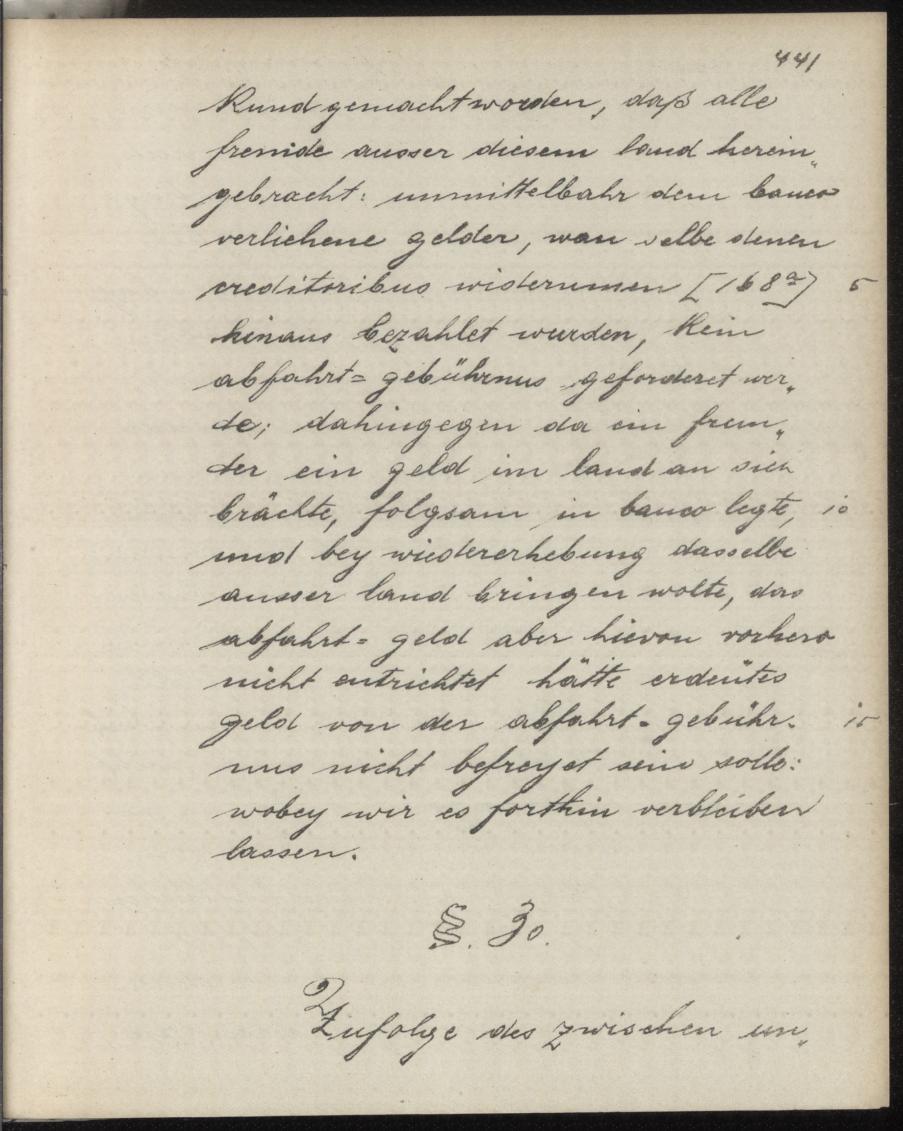 441
Kund gemacht worden, daß alle
fremde ausser diesem land herein„
gebracht: unmittelbahr dem banco
verliehene gelder, wan selbe denen
creditoribus widerumen [168a] 5
hinaus bezahlet wurden, kein
abfahrt= gebührnus geforderet wer„
de; dahingegen da ein frem„
der ein geld im land an sich
brächte, folgsam in banco legte, 10
und bey wiedererhebung dasselbe
ausser land bringen wolte, das
abfahrt= geld aber hievon vorhero
nicht entrichtet hätte erdeütes
geld von der abfahrt= gebühr= 15
nus nicht befreyet sein solle:
wobey wir es forthin verbleiben
lassen.
§. 30.
Zufolge des zwischen un„